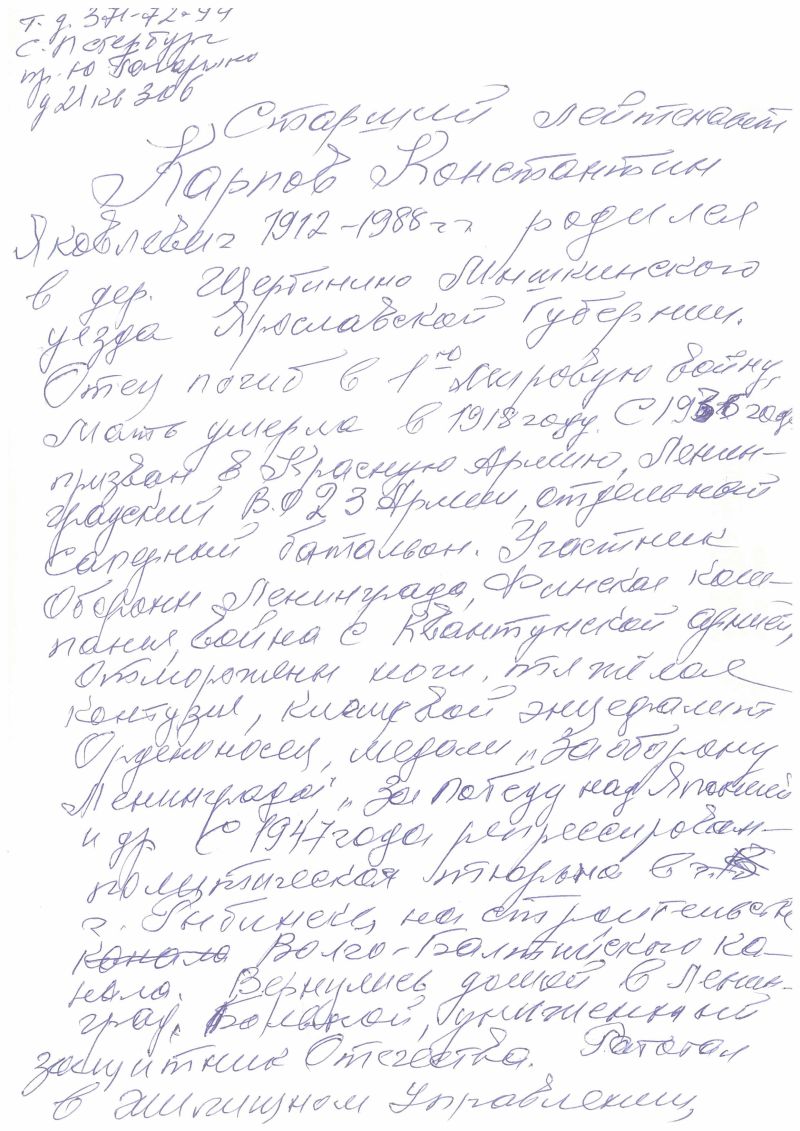 т. д. 371-72-44
С. Петербург
пр. Ю Гагарина
д 21 кв 306
Старший лейтенант
Карпов Константин
Яковлевич 1912-1988 гг родился
в дер. Щербинино Мышкинского
уезда Ярославской Губернии.
Отец погиб в 1ю мировую войну,
Мать умерла в 1918 году. С 19 года
призван в Красную Армию, Ленин-
градский В.О 23 Армии, отдельный
Саперный батальон. Участник
Обороны Ленинграда, Финская ком-
пания, война с Квантунской армией,
Отморожены ноги, тяжёлая
контузия, клещевой энцефалит
Орденоносец, медали „За оборону
Ленинграда", „За победу над Японией
и др С 1947 года репрессирован-
политическая тюрьма в
г. Рыбинске, на строительстве
канала Волго-Балтийского ка-
нала. Вернулись домой в Ленин-
град. Больной, униженный
защитник Отечества. Работал
в жилищном Управлении,